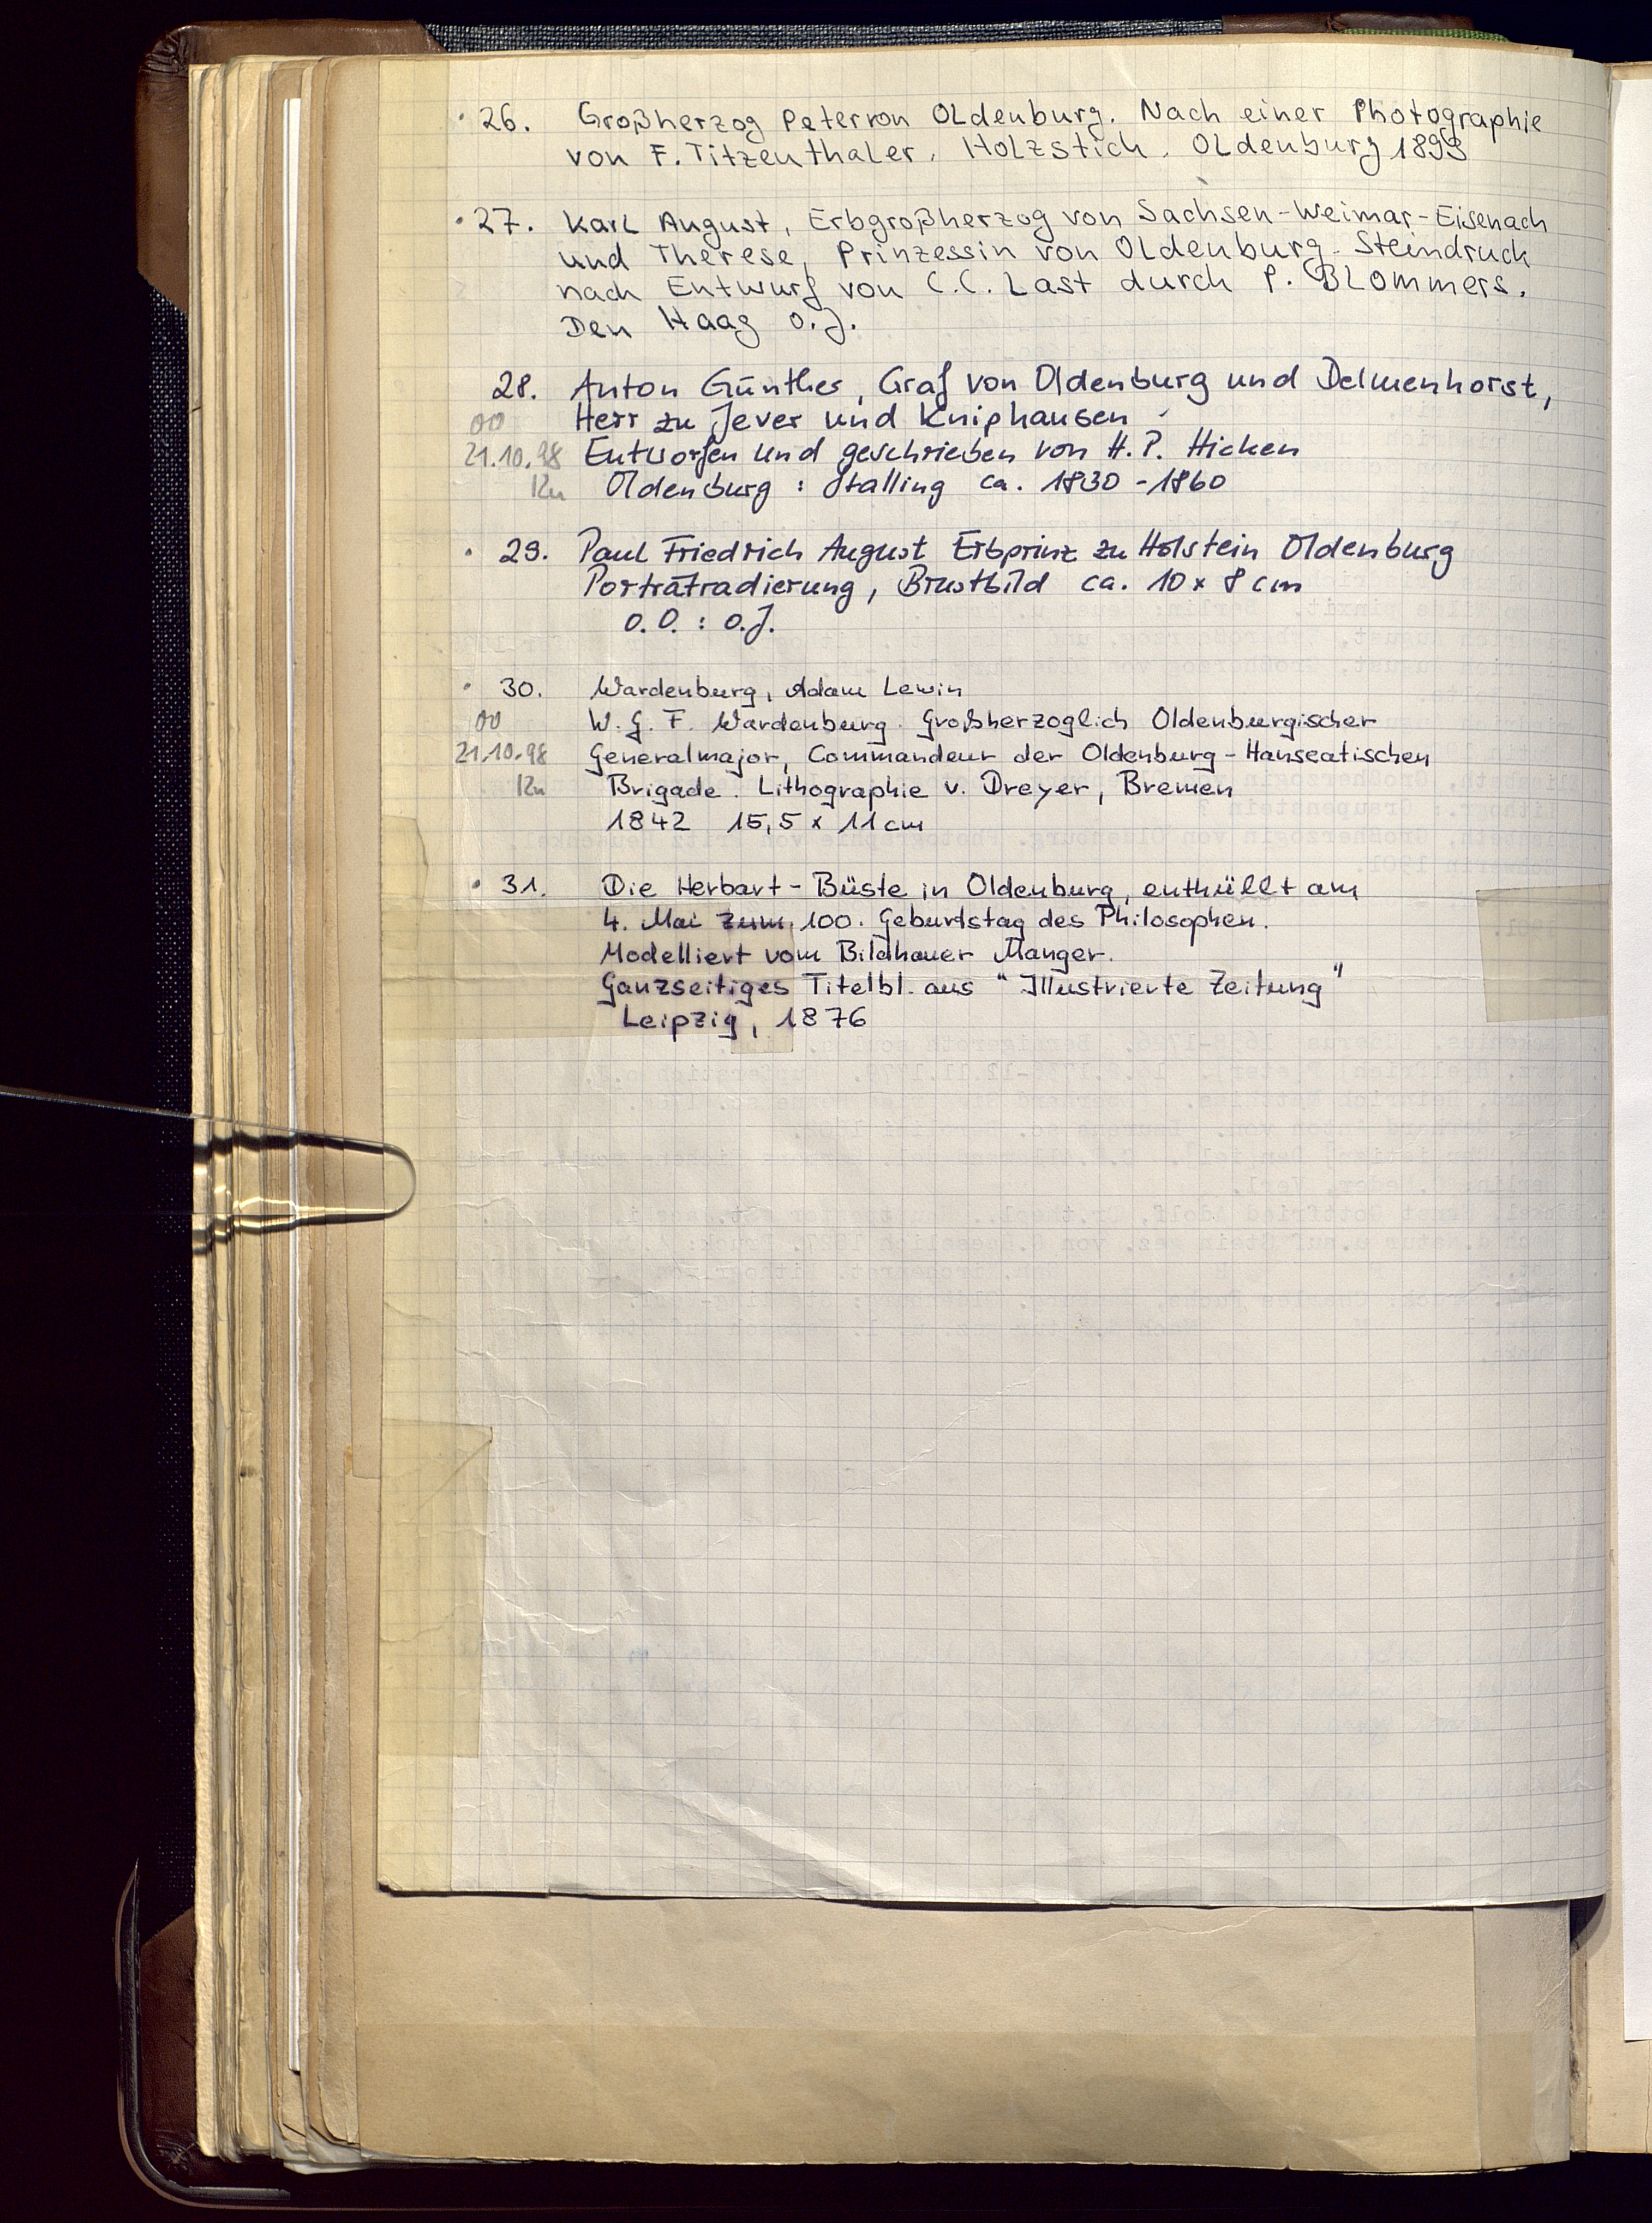 · 26. Großherzog Peter von Oldenburg. Nach einer Photographie
von F. Titzenthaler. Holzstich. Oldenburg 1899
· 27. Karl August, Erbgroßherzog von Sachsen-Weimar-Eisenach
und Therese, Prinzessin von Oldenburg. Steindruck
nach Entwurf von C.C. Last durch P. Blommers.
Den Haag o.J.
28. Anton Günther, Graf von Oldenburg und Delmenhorst,
00 Herr zu Jever und Kniphausen
21.10.98 Entworfen und geschrieben von H. P. Hicken
Ku Oldenburg : Stalling ca. 1830 - 1860
· 29. Paul Friedrich August Erbprinz zu Holstein Oldenburg
Porträtradierung, Brustbild ca. 10 x 8 cm
o.O. : o.J.
· 30. Wardenburg, Adam Lewin
00 W. G. F. Wardenburg. Großherzoglich Oldenburgischer
21.10.98 Generalmajor, Commandeur der Oldenburg-Hanseatischen
Ku Brigade. Lithographie v. Dreyer, Bremen
1842 15,5 x 11 cm
· 31. Die Herbart-Büste in Oldenburg, enthüllt am
4. Mai zum 100. Geburtstag des Philosophen.
Modelliert vom Bildhauer Manger.
Ganzseitiges Titelbl. aus "Illustrierte Zeitung"
Leipzig, 1876